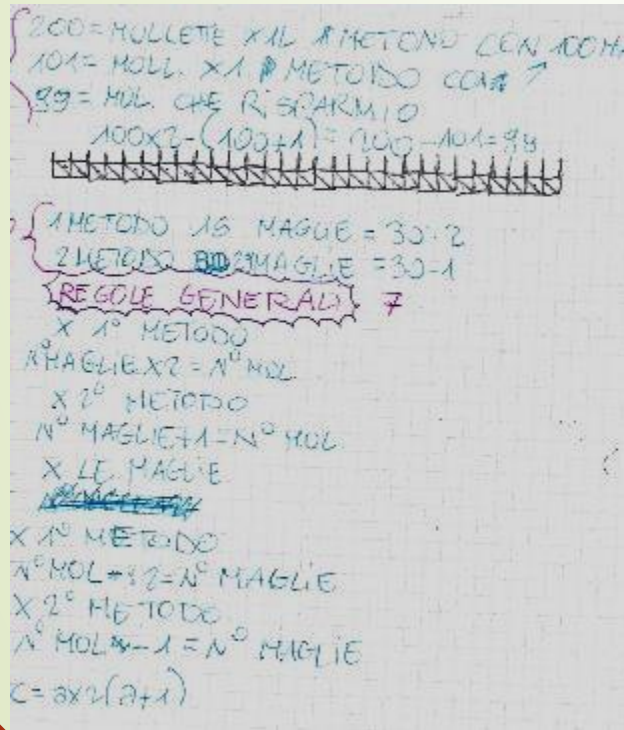 200 = MOLLETTE X IL 1 METODO CON 100 MA
101 = MOLL. X 1 METODO CON ↑
99 = MOL. CHE RISPARMIO
100x2-(100+1)= 200-101=99
1 METODO 15 MAGLIE = 30:2
2 METODO 29 MAGLIE = 30-1
REGOLE GENERALI 7
X 1° METODO
N° MAGLIE X2 = N° MOL.
X 2° METOTDO
N° MAGLIE+1=N° MOL.
X LE MAGLIE
X 1° METODO
N° MOL :2=N° MAGLIE
X 2° METODO
N° MOL -1 = N° MAGLIE
C=ax2(a+1)